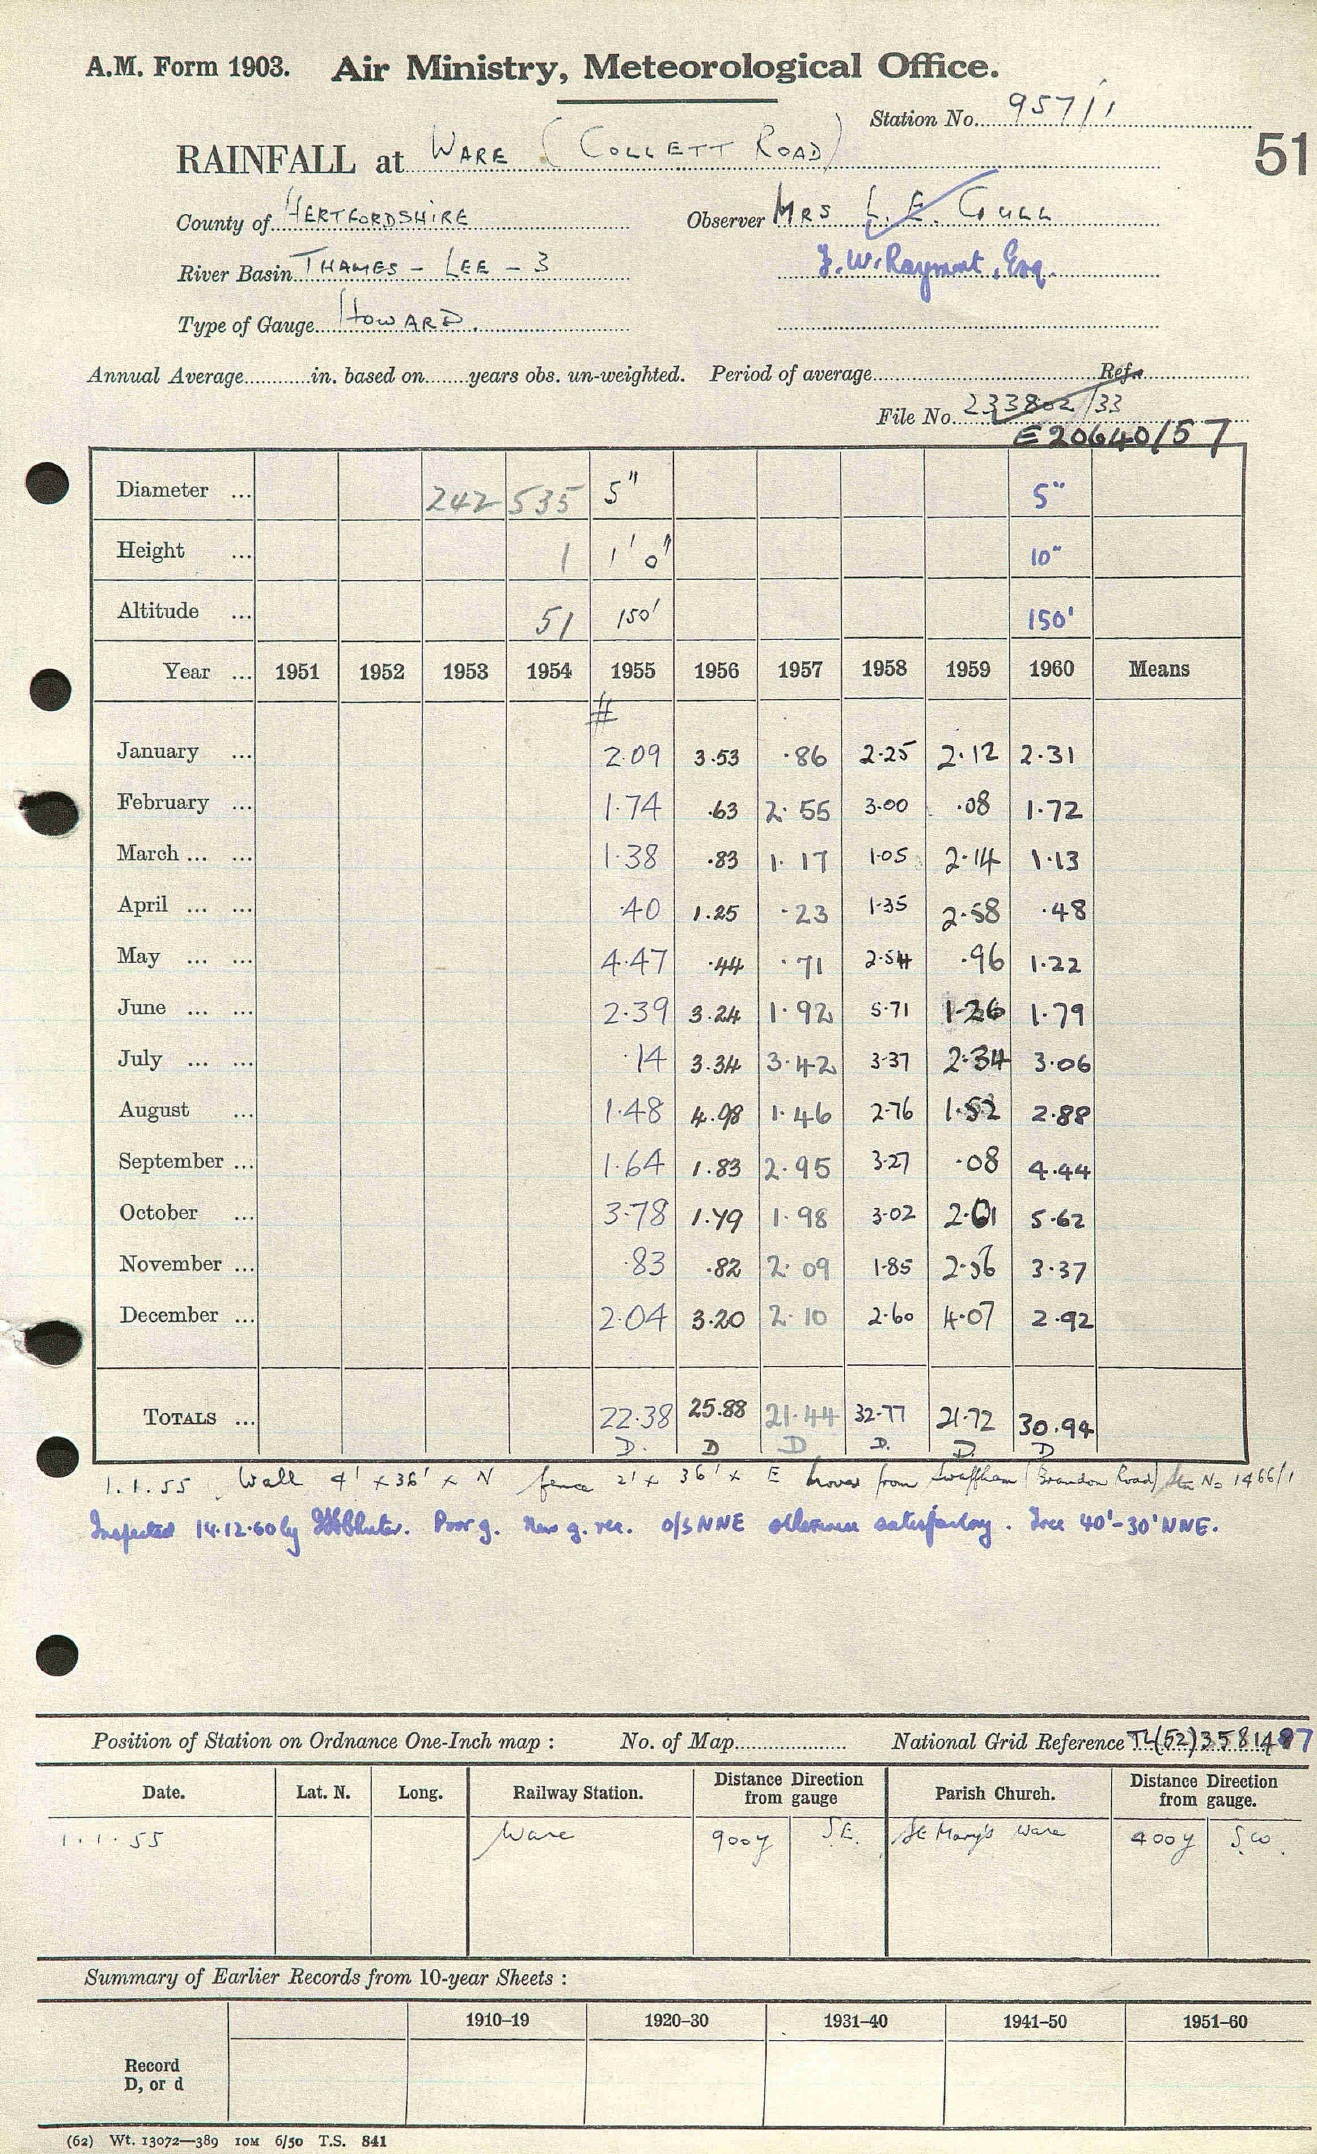 A.M. Form 1903. Air Ministry, Meteorological Office.
Station No. 957/1
51
RAINFALL at WARE (COLLETT ROAD)
County of HERTFORDSHIRE Observer MRS L. E. GULL
River Basin THAMES - LEE - 3 F. W. Rayment, Esq.
Type of Gauge HOWARD.
Annual Average............in. based on.......years obs. un-weighted. Period of average.......... Ref.
File No. 233802/33
E20640/57
Diameter ... 242 535 5" 5"
Height ... 1 1' 0" 10"
Altitude ... 51 150' 150'
Year ... 1951 1952 1953 1954 1955 1956 1957 1958 1959 1960 Means
#
January ... 2.09 3.53 .86 2.25 2.12 2.31
February ... 1.74 .63 2.55 3.00 .08 1.72
March ... ... 1.38 .83 1.17 1.05 2.14 1.13
April ... ... .40 1.25 .23 1.35 2.58 .48
May ... ... 4.47 .44 .71 2.54 .96 1.22
June ... ... 2.39 3.24 1.92 5.71 1.26 1.79
July ... ... .14 3.34 3.42 3.37 2.34 3.06
August ... 1.48 4.98 1.46 2.76 1.52 2.88
September ... 1.64 1.83 2.95 3.27 .08 4.44
October ... 3.78 1.79 1.98 3.02 2.01 5.62
November ... .83 .82 2.09 1.85 2.56 3.37
December ... 2.04 3.20 2.10 2.60 4.07 2.92
TOTALS ... 22.38 25.88 21.44 32.77 21.72 30.94
D. D D D. D. D
1.1.55 Wall 4' x 36' x N fence 2' x 36' x E moved from Swaffham (Brandon Road) Stn No 1466/1
Inspected 14.12.60 by Poor g. New g. rec. o/s NNE otherwise satisfactory. Tree 40'-30' NNE.
Position of Station on Ordnance One-Inch map : No. of Map................... National Grid Reference TL(52)358147
Date. Lat. N. Long. Railway Station. Distance Direction from gauge Parish Church. Distance Direction from gauge.
1.1.55 Ware 900y S.E. St Mary's Ware 400y S.W.
Summary of Earlier Records from 10-year Sheets :
1910–19 1920–30 1931–40 1941–50 1951–60
Record
D, or d
(62) Wt. 13072—389 10M 6/50 T.S. 841